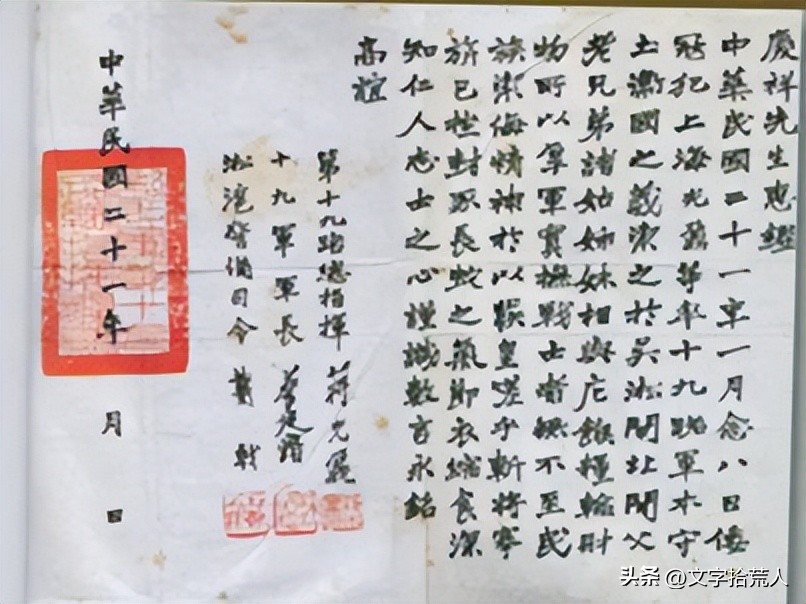 慶祥先生惠鑑
中華民國二十一年一月念八日倭
寇犯上海光鼐等率十九路軍本守
土衛國之義禦之於吳淞閘北間父
老兄弟諸姑姊妹相與庀餱糧輸財
物所以軍實撫戰士者無不至民
族禦侮精神於以皇嗟乎斬將搴
旂已挫封豕長蛇之氣節衣縮食深
知仁人志士之心謹識數言永銘
高誼
第十九路總指揮 蔣光鼐
十九軍軍長 蔡廷鍇
淞滬警備司令 戴戟
中華民國二十一年 月 日
头条 @文字拾荒人